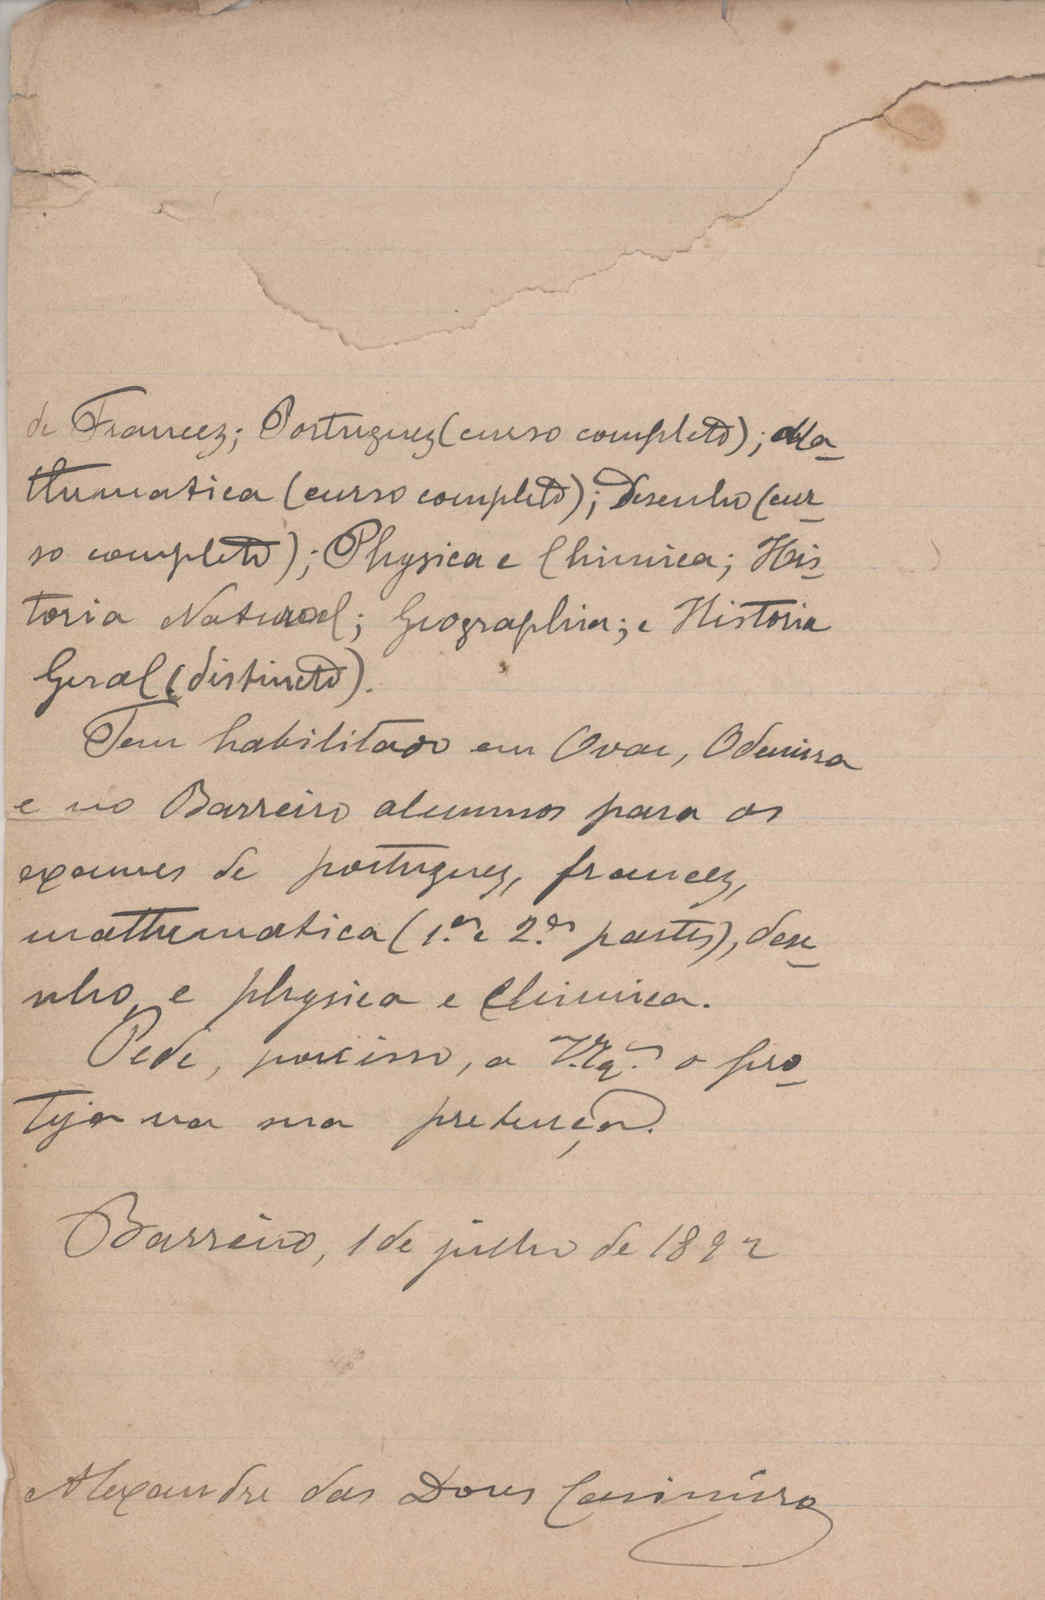 de Francez; Portuguez (curso completo); Ma-
thematica (curso completo); Desenho (cur-
so completo); Physica e Chimica; His-
toria Natural; Geographia; e Historia
Geral (distincto).
Tem habilitado em Ovar, Odemira
e no Barreiro alumnos para os
exames de portuguez, francez,
mathematica (1.as e 2.as partes), dese-
nho, e physica e chimica.
Pede, por isso, a V. o pro-
teja na sua pretenção.
Barreiro, 1 de julho de 1892
Alexandre das Dores Casimiro